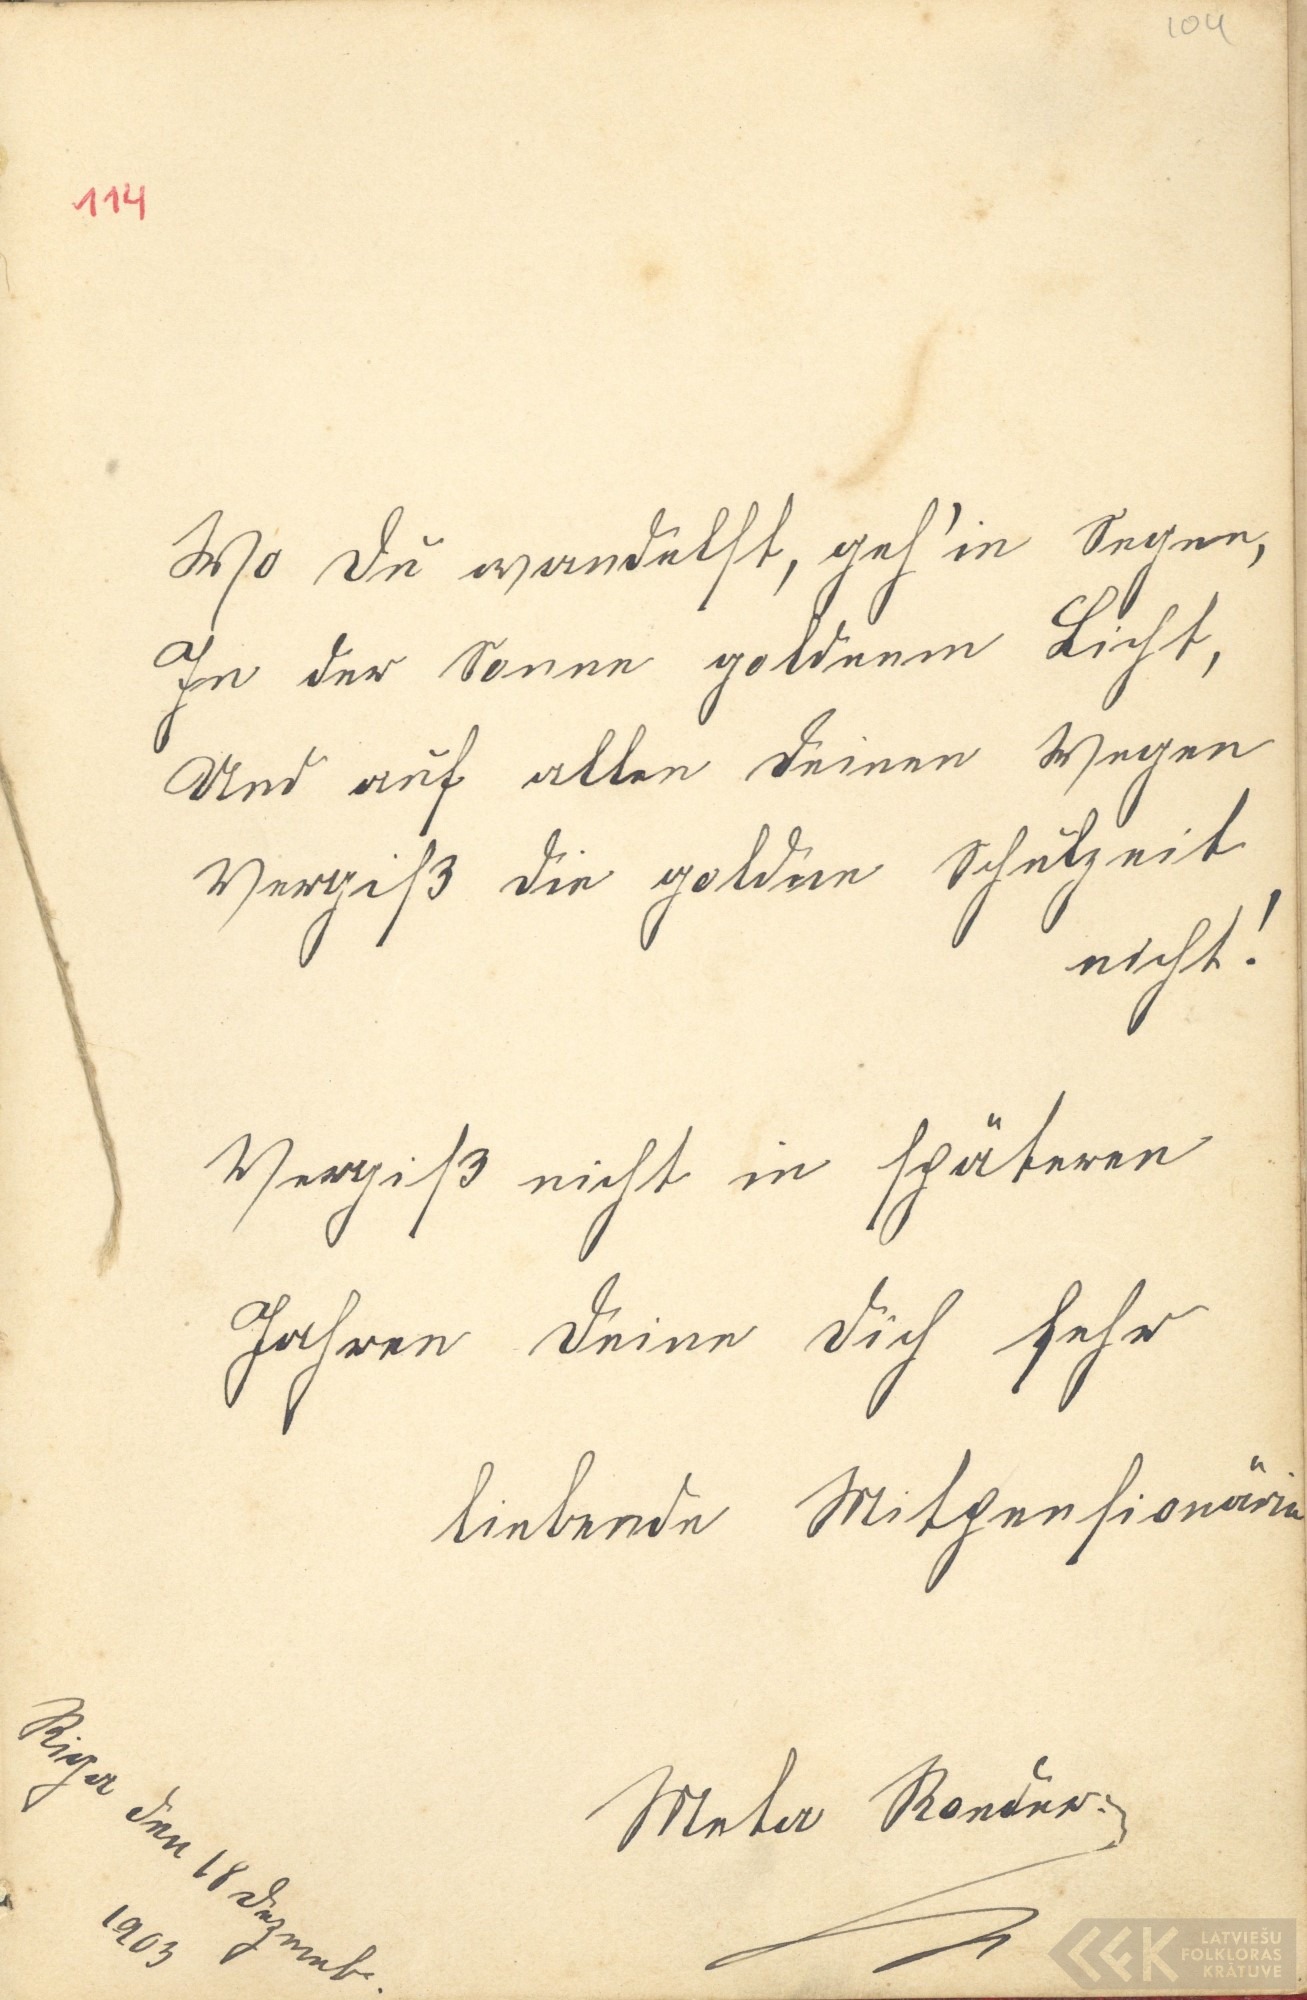 104
114
Wo Du wandelst, geh' in Segen,
In der Sonne goldnem Licht,
Und auf allen Deinen Wegen
Vergiß die goldne Schulzeit
nicht!
Vergiß nicht in späteren
Jahren Deine Dich sehr
liebende Mitpensionärin
Meta
Riga den 18 Dezemb.
1903
LATVIEŠU
FOLKLORAS
KRĀTUVE